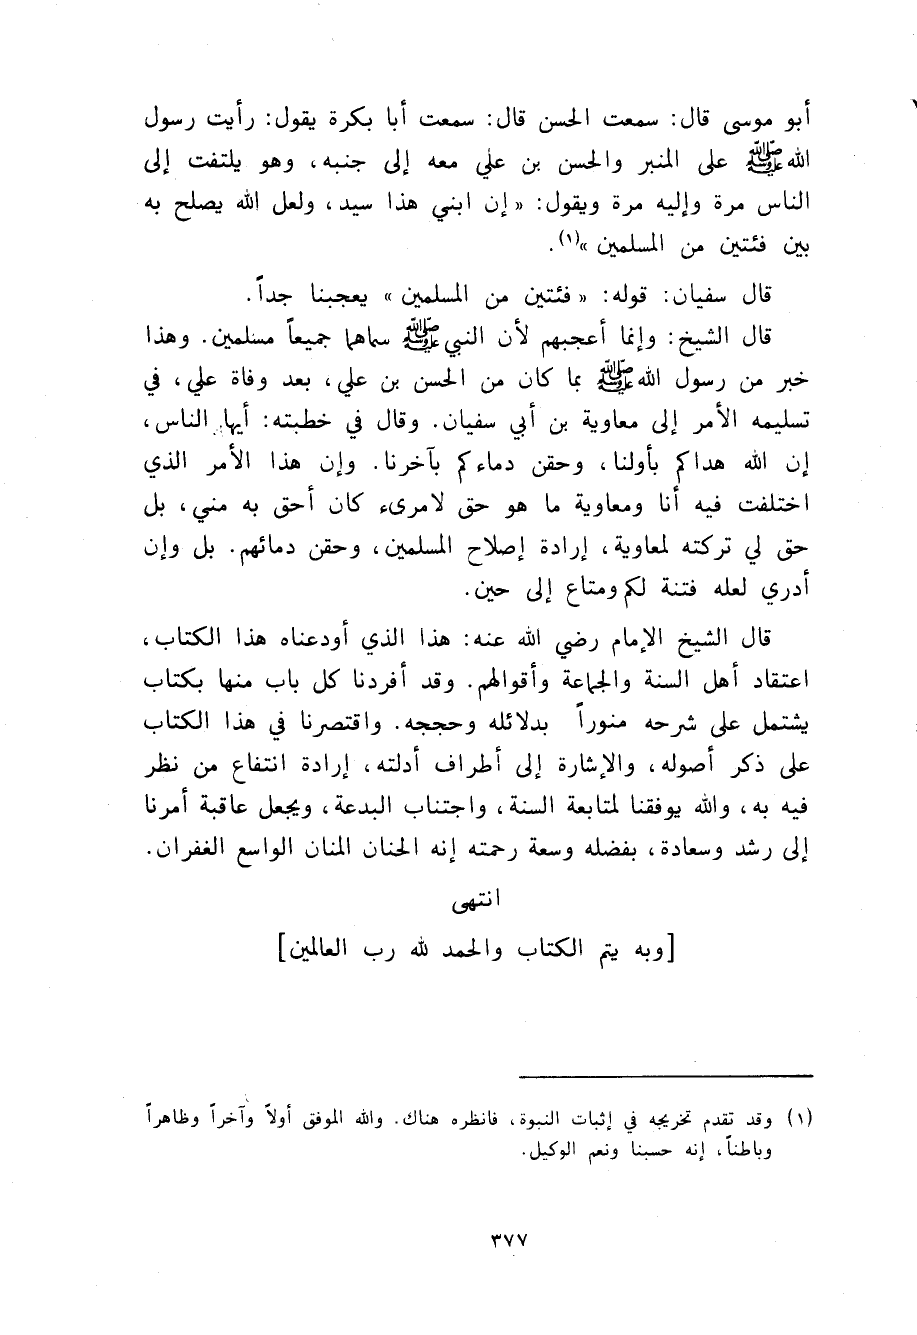 أبو موسى قال: سمعت الحسن قال: سمعت أبا بكرة يقول: رأيت رسول
الله ﷺ على المنبر والحسن بن علي معه إلى جنبه، وهو يلتفت إلى
الناس مرة وإليه مرة ويقول: «إن ابني هذا سيد، ولعل الله يصلح به
بين فئتين من المسلمين»(١).
قال سفيان: قوله: «فئتين من المسلمين» يعجبنا جداً.
قال الشيخ: وإنما أعجبهم لأن النبي ﷺ سماهما جميعاً مسلمين. وهذا
خبر من رسول الله ﷺ بما كان من الحسن بن علي، بعد وفاة علي، في
تسليمه الأمر إلى معاوية بن أبي سفيان. وقال في خطبته: أيها الناس،
إن الله هداكم بأولنا، وحقن دماءكم بآخرنا. وإن هذا الأمر الذي
اختلفت فيه أنا ومعاوية ما هو حق لامرىء كان أحق به مني، بل
حق لي تركته لمعاوية، إرادة إصلاح المسلمين، وحقن دمائهم. بل وإن
أدري لعله فتنة لكم ومتاع إلى حين.
قال الشيخ الإمام رضي الله عنه: هذا الذي أودعناه هذا الكتاب،
اعتقاد أهل السنة والجماعة وأقوالهم. وقد أفردنا كل باب منها بكتاب
يشتمل على شرحه منوراً بدلائله وحججه. واقتصرنا في هذا الكتاب
على ذكر أصوله، والإشارة إلى أطراف أدلته، إرادة انتفاع من نظر
فيه به، والله يوفقنا لمتابعة السنة، واجتناب البدعة، ويجعل عاقبة أمرنا
إلى رشد وسعادة، بفضله وسعة رحمته إنه الحنان المنان الواسع الغفران.
انتهى
[وبه يتم الكتاب والحمد لله رب العالمين]
(١) وقد تقدم تخريجه في إثبات النبوة، فانظره هناك. والله الموفق أولاً وآخراً وظاهراً
وباطناً، إنه حسبنا ونعم الوكيل.
٣٧٧